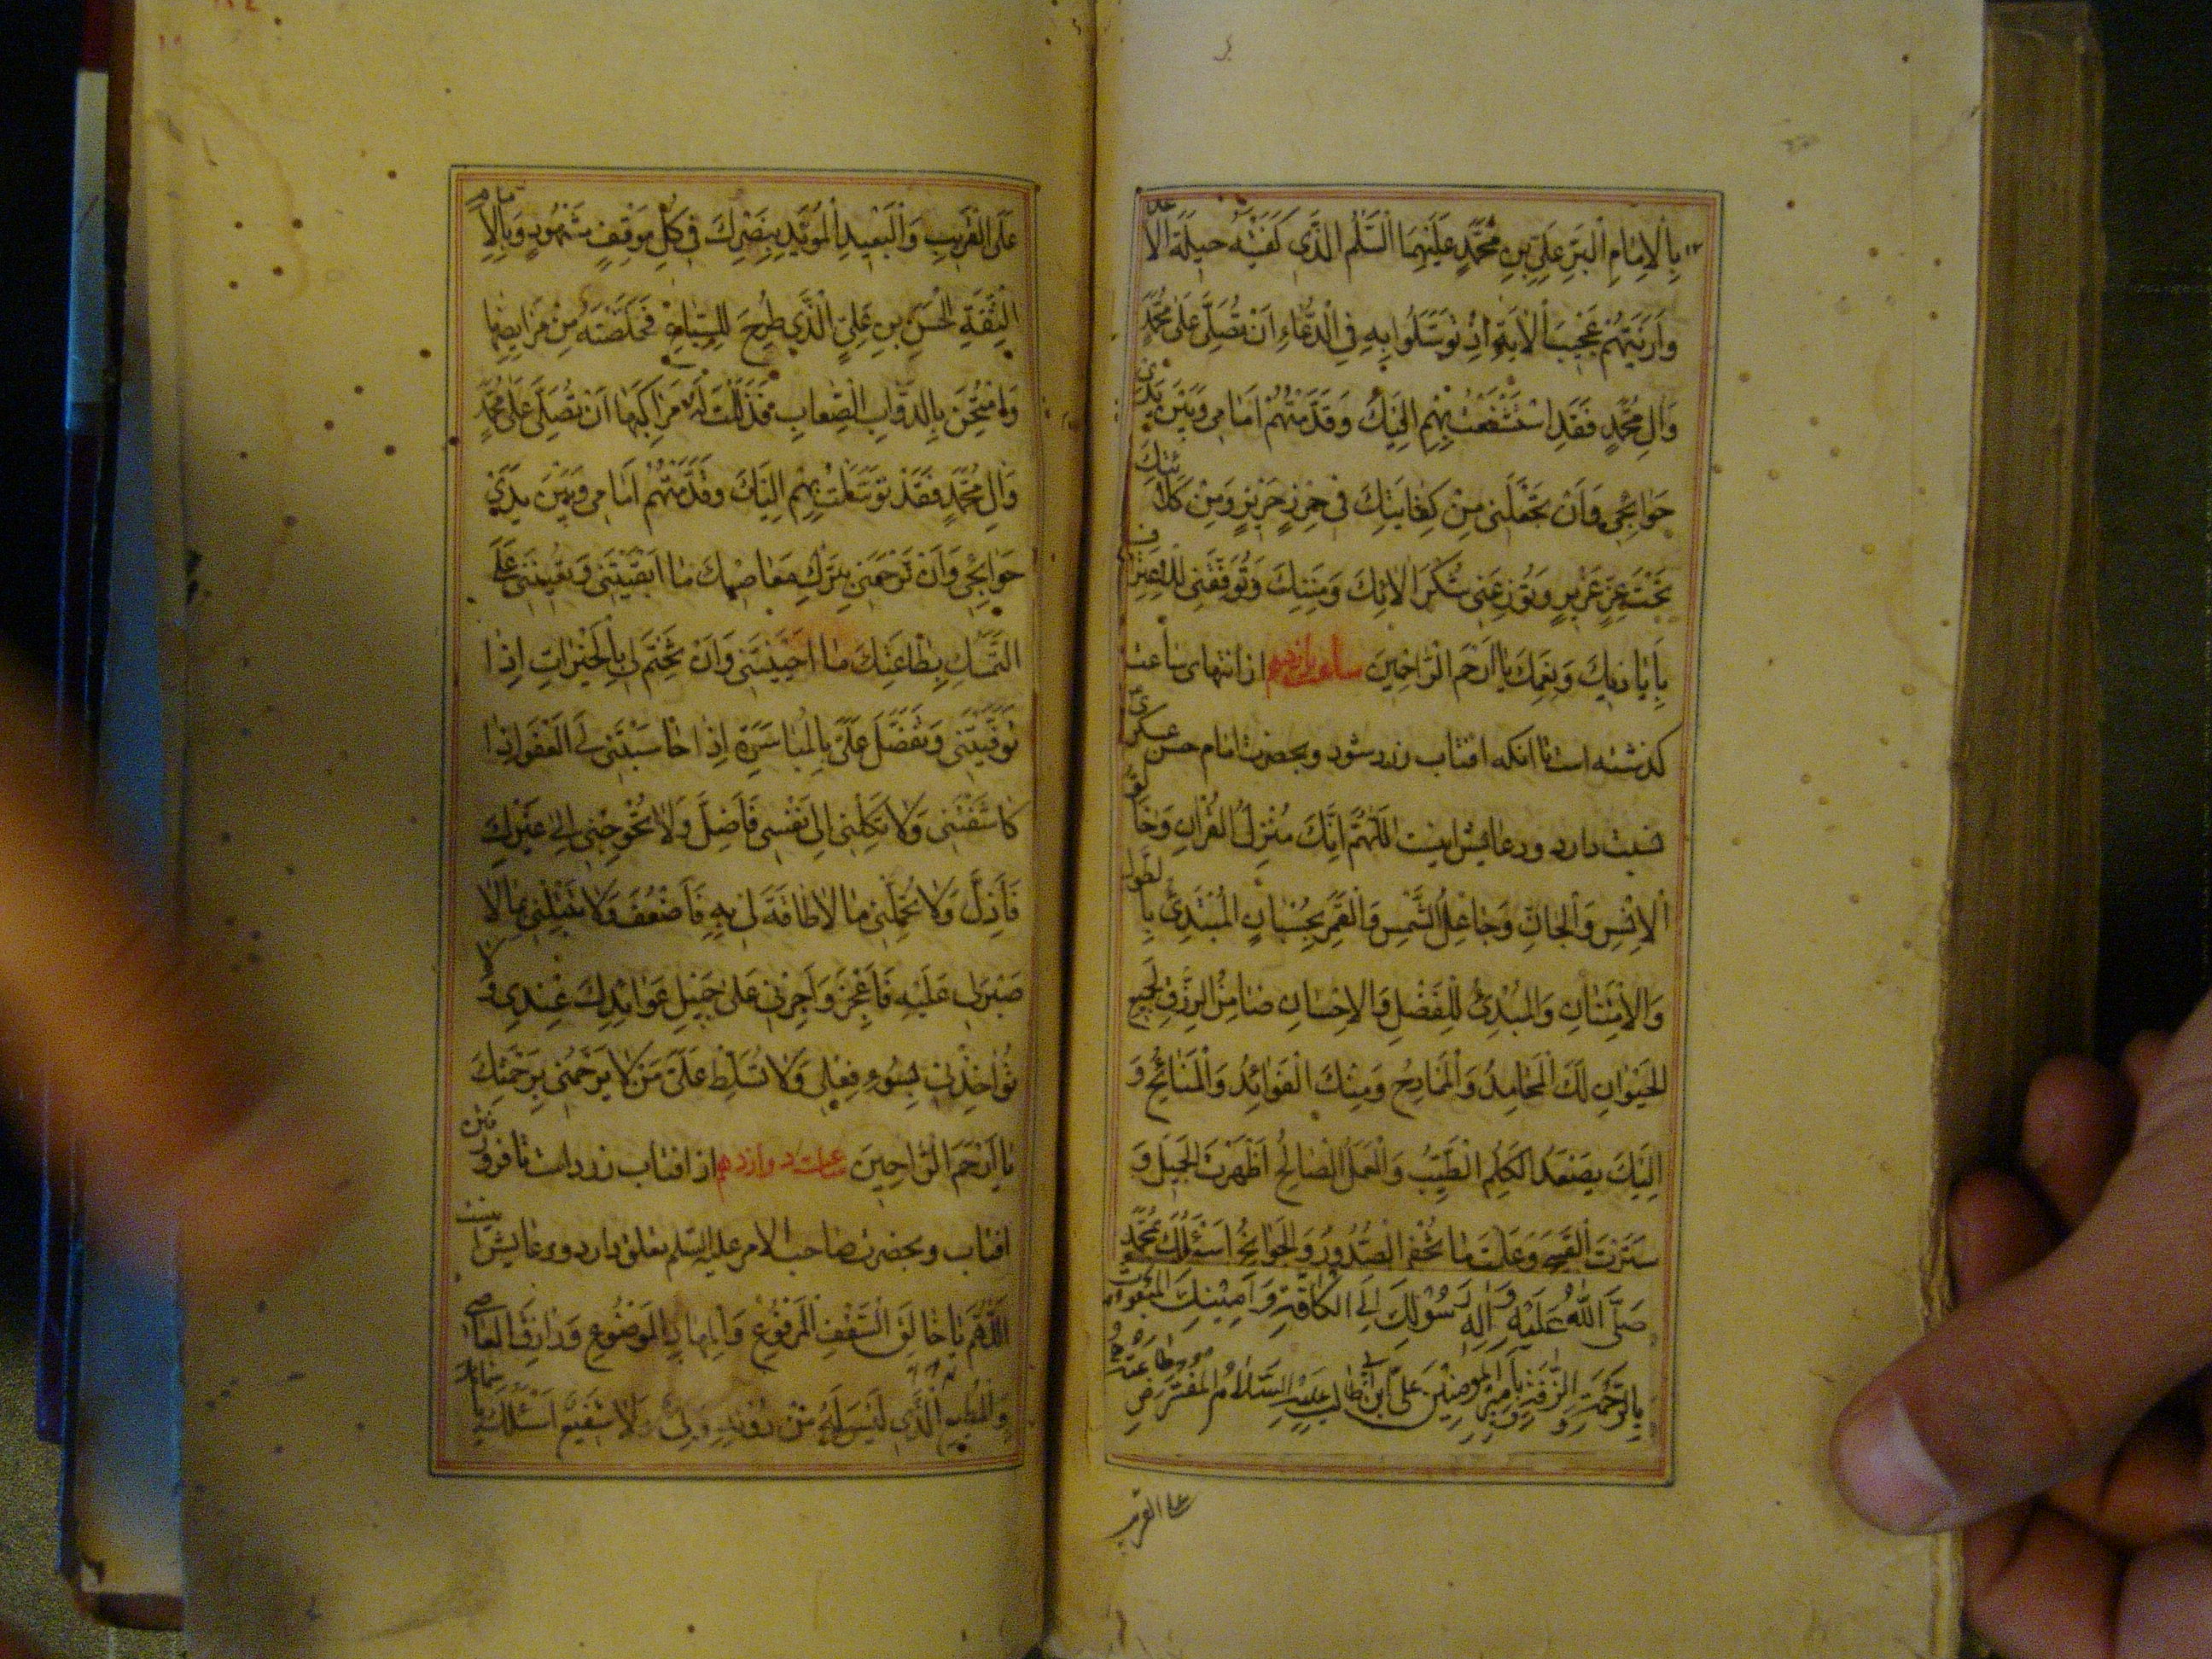 بِالْاِمَامِ الْبَرِّ عَلِيِّ بْنِ مُحَمَّدٍ عَلَيْهِمَا السَّلٰمُ الَّذِي كَفَيْتَهُ حِيلَةَ الْاَعداء
وَاَرَيْتَهُمْ عَجِيبَ الْاٰيَةِ اِذْ تَوَسَّلُوا بِهِ فِي الدُّعَاءِ اَنْ تُصَلِّيَ عَلٰى مُحَمَّدٍ
وَاٰلِ مُحَمَّدٍ فَقَدِ اسْتَشْفَعْتُ بِهِمْ اِلَيْكَ وَقَدَّمْتُهُمْ اَمَامِي وَبَيْنَ يَدَيْ
حَوَائِجِي وَاَنْ تَجْعَلَنِي مِنْ كِفَايَتِكَ فِي حِرْزٍ حَرِيزٍ وَمِنْ كَلَائَتِكَ
تَحْتَ عِزٍّ عَزِيزٍ وَتُوزِعَنِي شُكْرَ اٰلَائِكَ وَمِنَنِكَ وَتُوَفِّقَنِي لِلْاِعْتِرَافِ
بِاَيَادِيكَ وَنِعَمِكَ يَا اَرْحَمَ الرَّاحِمِينَ ساعت یازدهم از انتهای ساعت
کذشته است تا آنکه افتاب زرد شود و بحضرت امام حسن عسکری
نسبت دارد و دعایش اینست اَللّٰهُمَّ اِنَّكَ مُنْزِلُ الْقُرْاٰنِ وَخَالِقُ
الْاِنْسِ وَالْجَانِّ وَجَاعِلُ الشَّمْسِ وَالْقَمَرِ بِحُسْبَانٍ الْمُبْتَدِئُ بِالطَّوْلِ
وَالْاِمْتِنَانِ وَالْمُبْدِئُ لِلْفَضْلِ وَالْاِحْسَانِ ضَامِنُ الرِّزْقِ لِجَمِيعِ
الْحَيَوَانِ لَكَ الْمَحَامِدُ وَالْمَمَادِحُ وَمِنْكَ الْفَوَائِدُ وَالْمَنَائِحُ وَ
اِلَيْكَ يَصْعَدُ الْكَلِمُ الطَّيِّبُ وَالْعَمَلُ الصَّالِحُ اَظْهَرْتَ الْجَمِيلَ وَ
سَتَرْتَ الْقَبِيحَ وَعَلِمْتَ مَا تُخْفِي الصُّدُورُ وَالْجَوَانِحُ اَسْئَلُكَ بِمُحَمَّدٍ
صَلَّى اللّٰهُ عَلَيْهِ وَاٰلِهِ رَسُولِكَ اِلَى الْكَافَّةِ وَاَمِينِكَ الْمَبْعُوثِ
بِالرَّحْمَةِ وَالرَّأْفَةِ وَبِاَمِيرِ الْمُؤْمِنِينَ عَلِيِّ ابْنِ اَبِي طَالِبٍ عَلَيْهِ السَّلَامُ الْمُفْتَرَضِ طَاعَتُهُ
علی القریب
عَلَى الْقَرِيبِ وَالْبَعِيدِ الْمُؤَيَّدِ بِنَصْرِكَ فِي كُلِّ مَوْقِفٍ مَشْهُودٍ وَبِالْاِمَامِ
الثِّقَةِ الْحَسَنِ بْنِ عَلِيٍّ الَّذِي طُرِحَ لِلسِّبَاعِ فَخَلَّصْتَهُ مِنْ مَرَابِضِهَا
وَامْتُحِنَ بِالدَّوَابِّ الصِّعَابِ فَذَلَّلْتَ لَهُ مَرَاكِبَهَا اَنْ تُصَلِّيَ عَلٰى مُحَمَّدٍ
وَاٰلِ مُحَمَّدٍ فَقَدْ تَوَسَّلْتُ بِهِمْ اِلَيْكَ وَقَدَّمْتُهُمْ اَمَامِي وَبَيْنَ يَدَيْ
حَوَائِجِي وَاَنْ تَرْحَمَنِي بِتَرْكِ مَعَاصِيكَ مَا اَبْقَيْتَنِي وَتُعِينَنِي عَلَى
التَّمَسُّكِ بِطَاعَتِكَ مَا اَحْيَيْتَنِي وَاَنْ تَخْتِمَ لِي بِالْخَيْرَاتِ اِذَا
تَوَفَّيْتَنِي وَتَفَضَّلَ عَلَيَّ بِالْمُيَاسَرَةِ اِذَا حَاسَبْتَنِي الْعَفْوَ اِذَا
كَاشَفْتَنِي وَلَا تَكِلْنِي اِلٰى نَفْسِي فَاَضِلَّ وَلَا تُحْوِجْنِي اِلٰى غَيْرِكَ
فَاَذِلَّ وَلَا تُحَمِّلْنِي مَا لَا طَاقَةَ لِي بِهِ فَاَضْعُفَ وَلَا تَبْتَلِنِي بِمَا لَا
صَبْرَ لِي عَلَيْهِ فَاَعْجِزَ وَاَجِرْنِي عَلٰى جَمِيلِ عَوَائِدِكَ عِنْدِي وَلَا
تُؤَاخِذْنِي بِسُوءِ فِعْلِي وَلَا تُسَلِّطْ عَلَيَّ مَنْ لَا يَرْحَمُنِي بِرَحْمَتِكَ
يَا اَرْحَمَ الرَّاحِمِينَ ساعت دوازدهم از افتاب زرد است تا فرو رفتن
افتاب و بحضرت صاحب الامر علیه السلم تعلق دارد و دعایش اینست
اَللّٰهُمَّ يَا خَالِقَ السَّقْفِ الْمَرْفُوعِ وَالْمِهَادِ الْمَوْضُوعِ وَرَازِقَ الْعَاصِي
وَالْمُطِيعِ الَّذِي لَيْسَ لَهُ مِنْ دُونِهِ وَلِيٌّ وَلَا شَفِيعٌ اَسْئَلُكَ بِاَسْمَائِكَ